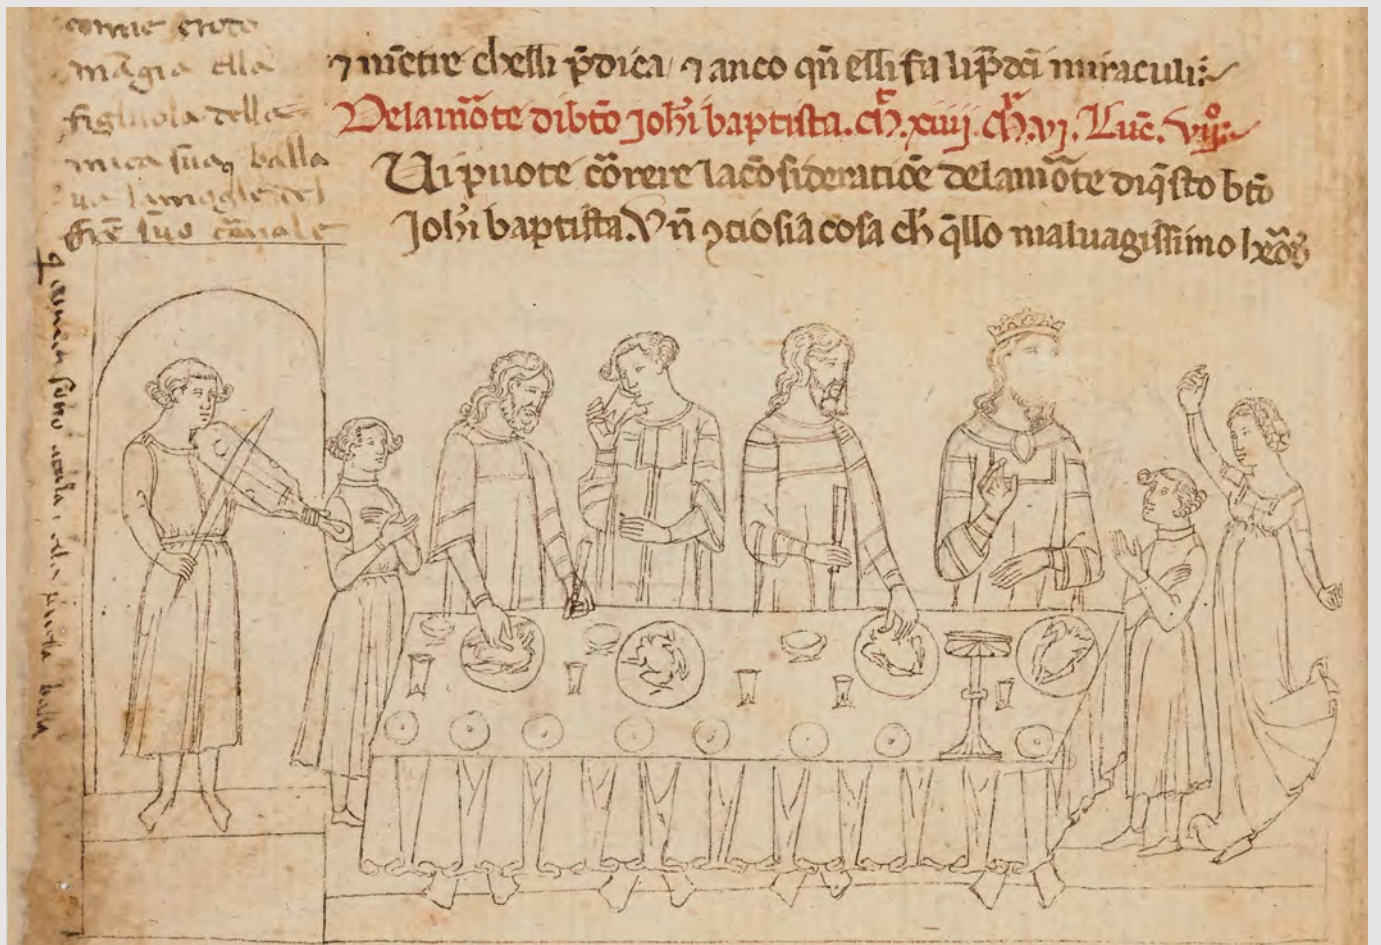 come erode
mãgia ella
figluola della
mica sua, balla
ua la mogle del
frẽ suo carnale
⁊ mẽtre chelli p̃dica ⁊ anco qñ elli fa li p̃dcĩ miraculi.
Dela mõte di btõ Joħi baptista. cħ. xiiij. cħ. vj. Luc̃. vij.
Ui puote cõrere la cõsideratiõe dela mõte di q̃sto btõ
Joħi baptista. Vñ ꝯciosia cosa cħ q̃llo maluagissimo
sono la balla